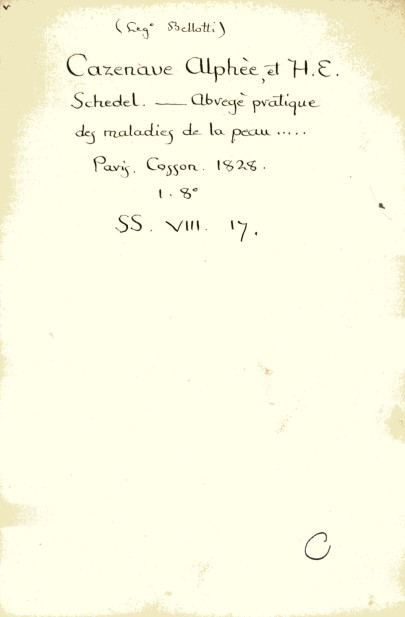 (Leg° Bellotti)
Cazenave Alphèe, et H. E.
Schedel. — Abregè pratique
des maladies de la peau .....
Paris. Cosson. 1828.
1. 8°
SS. VIII. 17.
C